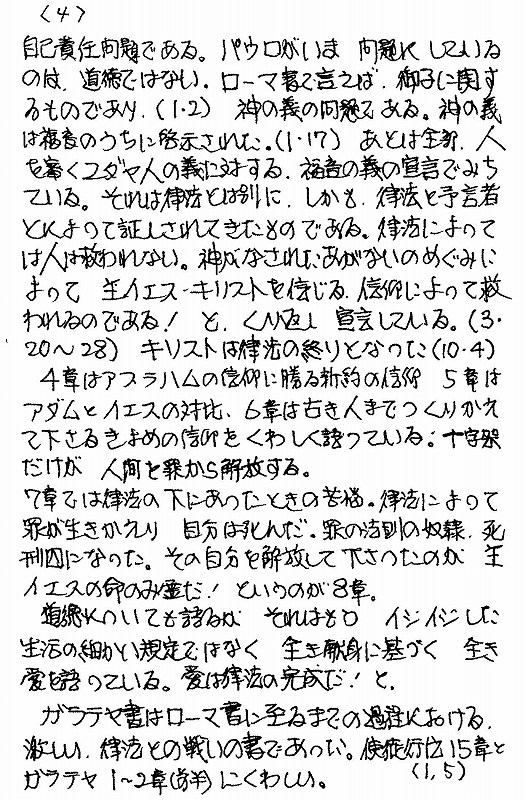 (4)
自己責任問題である。パウロがいま 問題にしている
のは、道徳ではない。ローマ書で言えば、御子に関す
るものであり、(1・2) 神の義の問題である。神の義
は福音のうちに啓示された。(1・17) あとは全部、人
を審くユダヤ人の義に対する、福音の義の宣言でみち
ている。それは律法とは別に、しかも、律法と予言者
とによって証しされてきたものである。律法によって
は人は救われない。神がなされたあがないのめぐみに
よって 主イエス-キリストを信じる、信仰によって救
われるのである! と、くり返し 宣言している。(3・
20〜28) キリストは律法の終りとなった(10・4)
4章はアブラハムの信仰に勝る新約の信仰 5章は
アダムとイエスの対比、6章は古き人までつくりかえ
て下さるきよめの信仰をくわしく語っている。十字架
だけが 人間を罪から解放する。
7章では律法の下にあったときの苦悩。律法によって
罪が生きかえり 自分は死んだ。罪の法則の奴隷、死
刑囚になった。その自分を解放して下さったのが 主
イエスの命のみ霊だ! というのが8章。
道徳についても語るが それはもう イジイジした
生活の細かい規定ではなく 全き献身に基づく 全き
愛を語っている。愛は律法の完成だ! と、
ガラテヤ書はローマ書に至るまでの過程における、
激しい、律法との戦いの書であった。使徒行伝15章と
ガラテヤ1〜2章(前半)にくわしい。 (1,5)